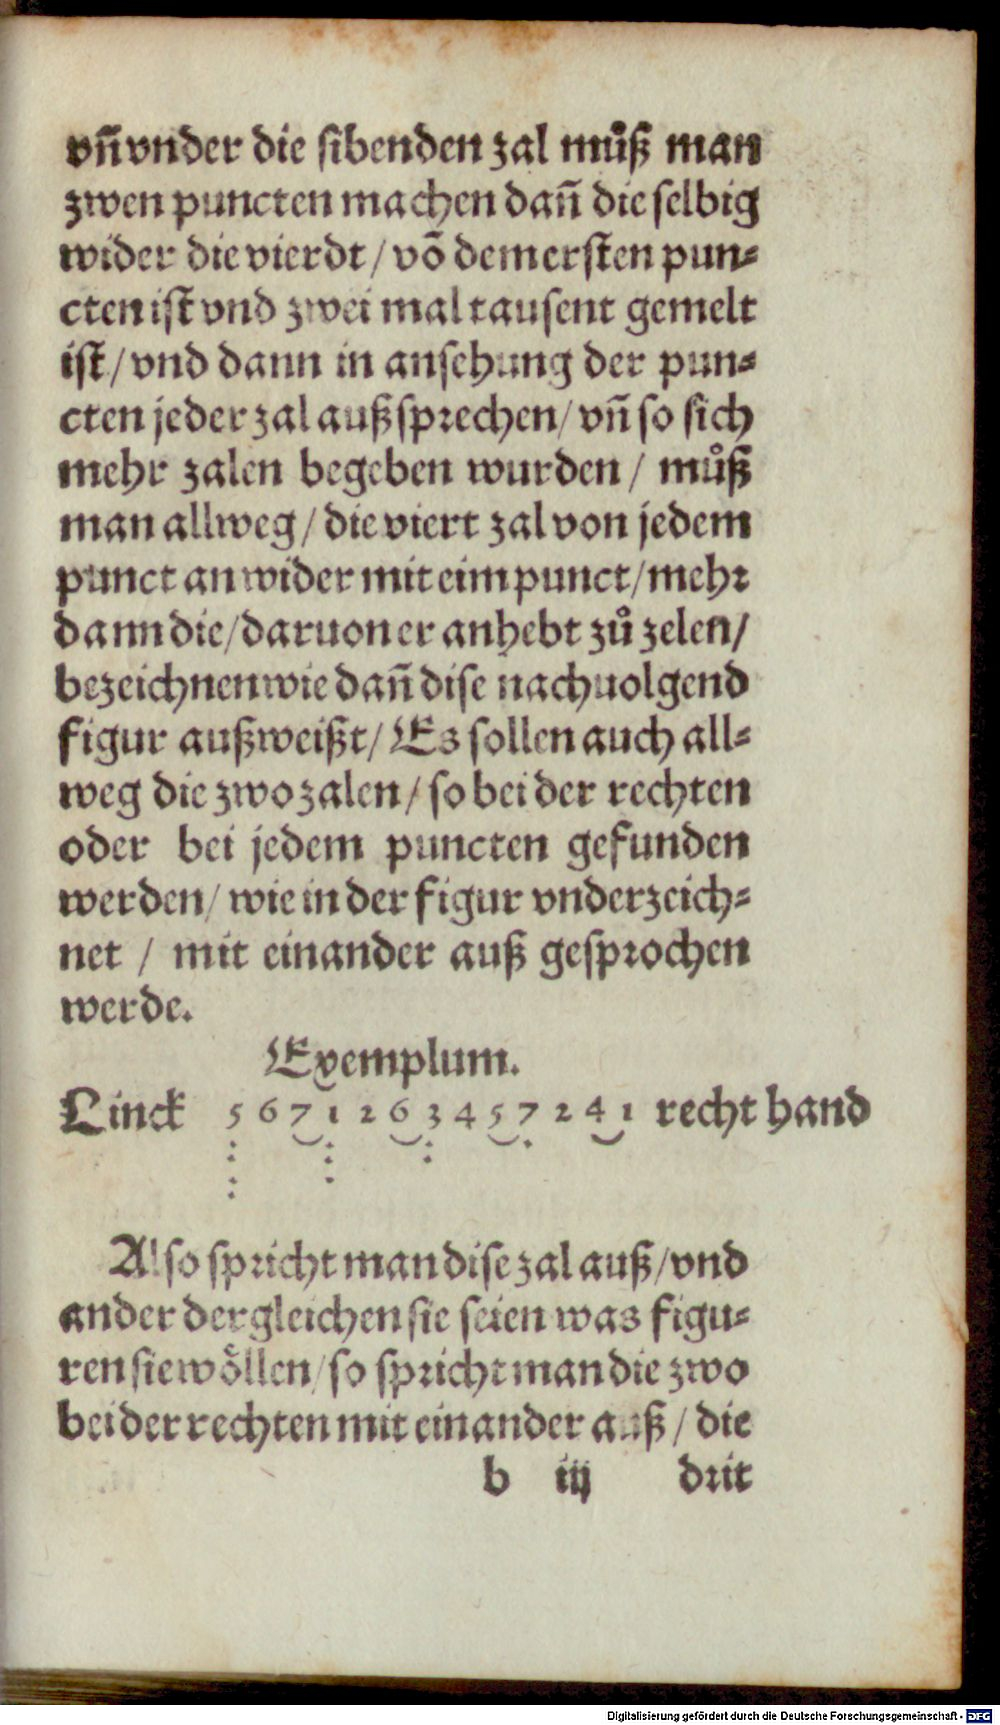 vñ vnder die sibenden zal můß man
zwen puncten machen dañ die selbig
wider die vierdt / võ dem ersten pun⸗
cten ist vnd zwei mal tausent gemelt
ist / vnd dann in ansehung der pun⸗
cten jeder zal außsprechen / vñ so sich
mehr zalen begeben wurden / můß
man allweg / die viert zal von jedem
punct an wider mit eim punct / mehr
dann die / daruon er anhebt zů zelen /
bezeichnen wie dañ dise nachuolgend
figur außweißt / Es sollen auch all⸗
weg die zwo zalen / so bei der rechten
oder bei jedem puncten gefunden
werden / wie in der figur vnderzeich⸗
net / mit einander auß gesprochen
werde.
Exemplum.
Linck 5 6 7 1 2 6 3 4 5 7 2 4 1 recht hand
Also spricht man dise zal auß / vnd
ander dergleichen sie seien was figu⸗
ren sie wöllen / so spricht man die zwo
bei der rechten mit einander auß / die
b iij drit
Digitalisierung gefördert durch die Deutsche Forschungsgemeinschaft - DFG